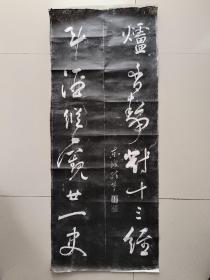 爐香靜對十三經
斗酒縱觀廿一史